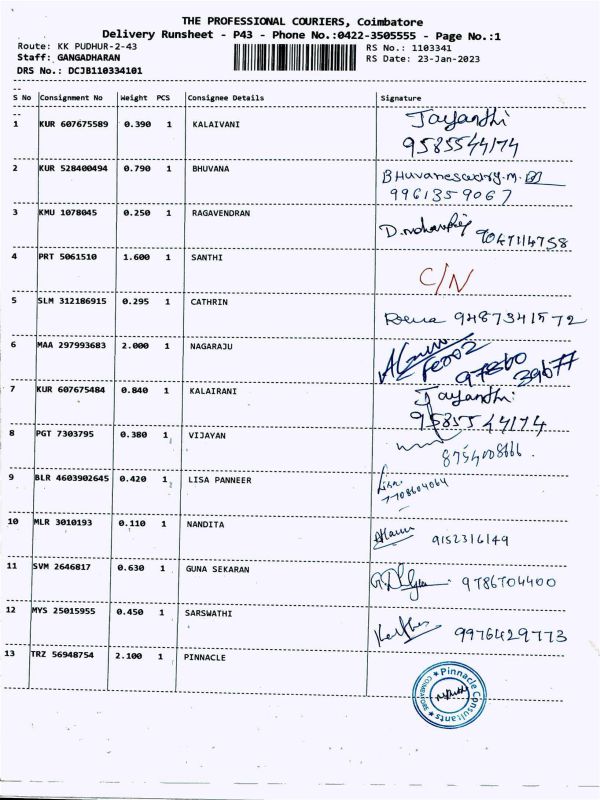 THE PROFESSIONAL COURIERS, Coimbatore
Delivery Runsheet - P43 - Phone No.:0422-3505555 - Page No.:1
Route: KK PUDHUR-2-43 RS No.: 1103341
Staff: GANGADHARAN RS Date: 23-Jan-2023
DRS No.: DCJB110334101
S No Consignment No Weight PCS Consignee Details Signature
1 KUR 607675589 0.390 1 KALAIVANI Jayanthi
9585544174
2 KUR 528400494 0.790 1 BHUVANA Bhuvaneswary.M.
9961359067
3 KMU 1078045 0.250 1 RAGAVENDRAN
4 PRT 5061510 1.600 1 SANTHI C/N
5 SLM 312186915 0.295 1 CATHRIN 9487341572
6 MAA 297993683 2.000 1 NAGARAJU
7 KUR 607675484 0.840 1 KALAIRANI Jayanthi
9585544174
8 PGT 7303795 0.380 1 VIJAYAN
9 BLR 4603902645 0.420 1 LISA PANNEER Lisa
7708604064
10 MLR 3010193 0.110 1 NANDITA 9152316149
11 SVM 2646817 0.630 1 GUNA SEKARAN 9786704400
12 MYS 25015955 0.450 1 SARSWATHI 9976429773
13 TRZ 56948754 2.100 1 PINNACLE
Pinnacle Consultants
COIMBATORE